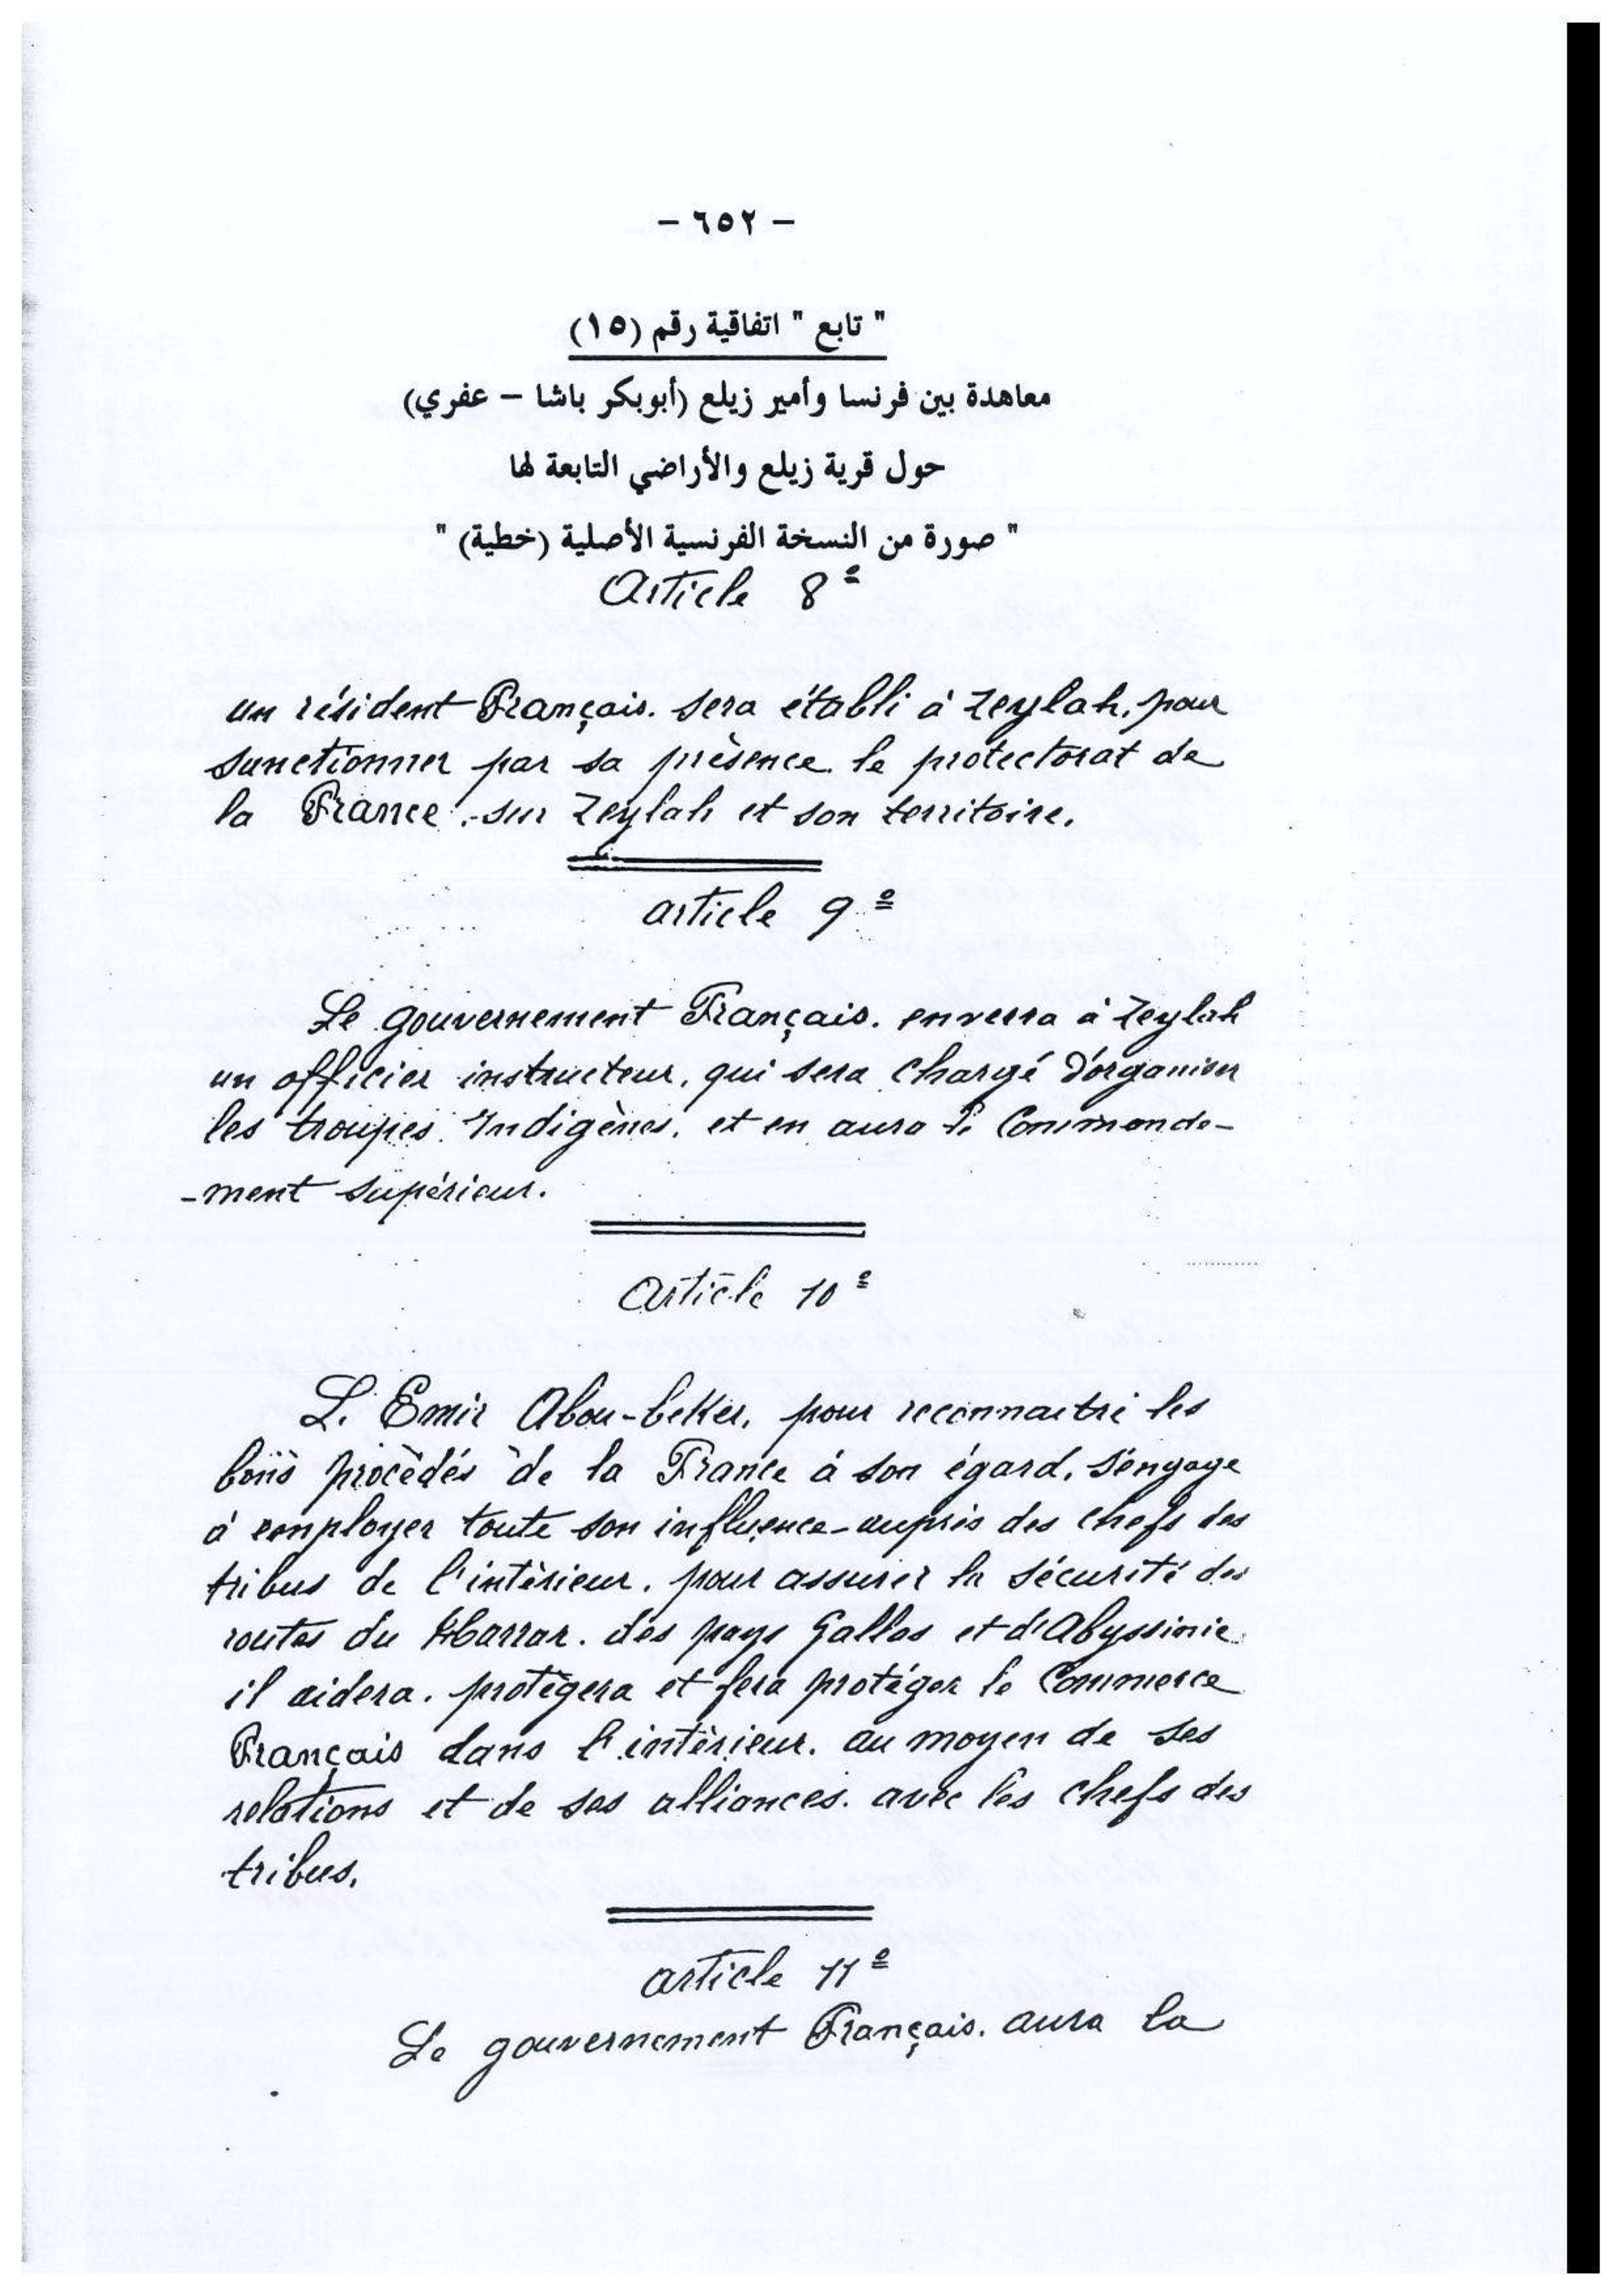 – ٦٥٢ –
" تابع " اتفاقية رقم (١٥)
معاهدة بين فرنسا وأمير زيلع (أبوبكر باشا – عفري)
حول قرية زيلع والأراضي التابعة لها
" صورة من النسخة الفرنسية الأصلية (خطية) "
Article 8e
un résident Français. sera établi à Zeylah, pour
sunctionner par sa présence le protectorat de
la France. sur Zeylah et son territoire.
article 9e
Le gouvernement Français. enverra à Zeylah
un officier instructeur, qui sera chargé d'organiser
les troupes Indigènes, et en aura le Commande-
-ment supérieur.
Article 10e
L. Emir Abou-beker, pour reconnaitre les
bons procèdés de la France à son égard, s'engage
à employer toute son influence auprès des chefs des
tribus de l'intèrieur. pour assurer la sécurité des
routes du Harrar. des pays Gallas et d'Abyssinie
il aidera. protègera et fera protéger le Commerce
Français dans l'intèrieur. au moyen de ses
relations et de ses alliances. avec les chefs des
tribus.
article 11e
Le gouvernement Français. aura la